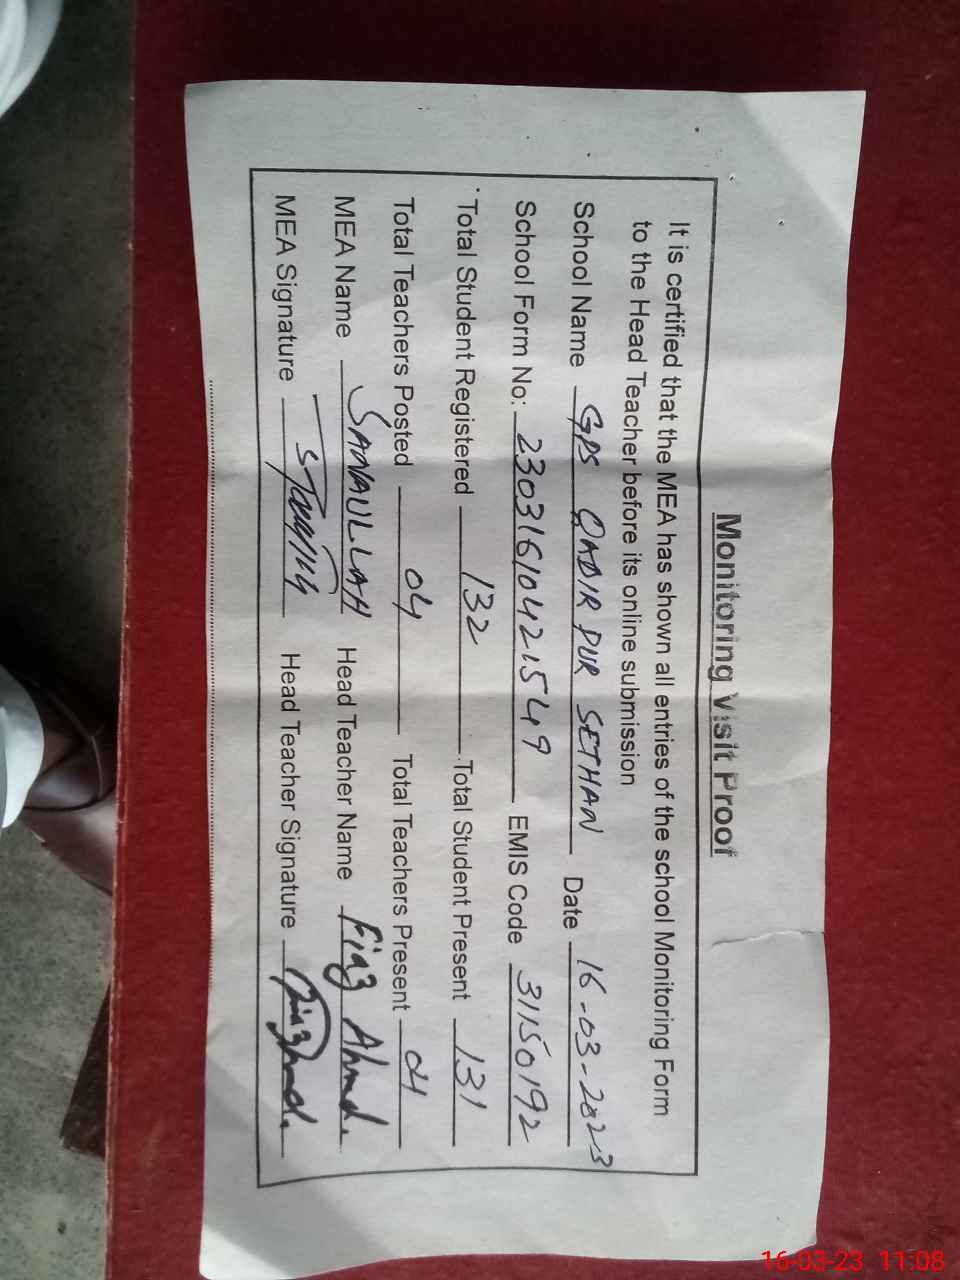 Monitoring Visit Proof
It is certified that the MEA has shown all entries of the school Monitoring Form
to the Head Teacher before its online submission
School Name GPS QADIR PUR SETHAN Date 16-03-2023
School Form No: 23031610421549 EMIS Code 31150192
Total Student Registered 132 Total Student Present 131
Total Teachers Posted 04 Total Teachers Present 04
MEA Name SANAULLAH Head Teacher Name Fiaz Ahmad.
MEA Signature Head Teacher Signature
16-03-23 11:08